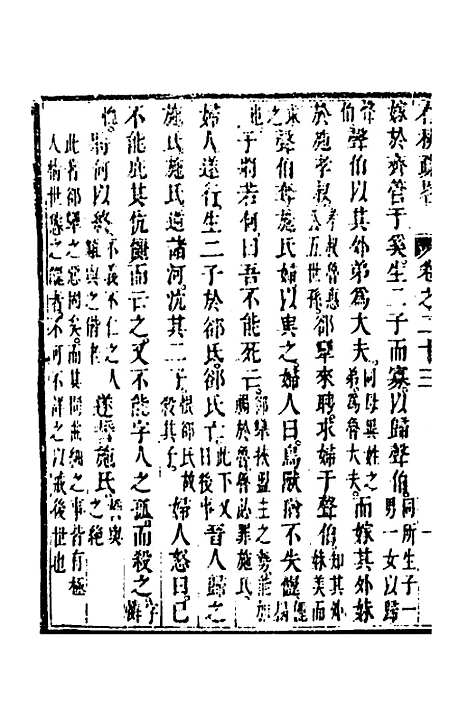 卷之二十三
嫁於齊管于奚生二子而寡以歸聲伯同所生子一男一女以歸
聲伯聲伯以其外弟爲大夫同母異姓之弟爲魯大夫而嫁其外妹
於施孝叔孝叔魯惠公五世孫郤犨來聘求婦于聲伯知其外妹美而
求之聲伯奪施氏婦以與之婦人曰鳥獸猶不失儷儷耦
也子將若何曰吾不能死亡郤犨扶盟主之勢能禍於魯魯必罪施氏
婦人遂行生二子於郤氏郤氏亡此下又日後事晉人歸之
施氏施氏逆諸河沈其二子恨郤氏故殺其子婦人怒曰己
不能庇其伉儷而亡之又不能字人之孤而殺之字
將何以終不義不仁之人難與之偕老遂誓施氏誓與之絕
此著郤犨之惡周矣而其間瑣細之事皆有極
人情世態之詳者不可不詳之以戒後世也